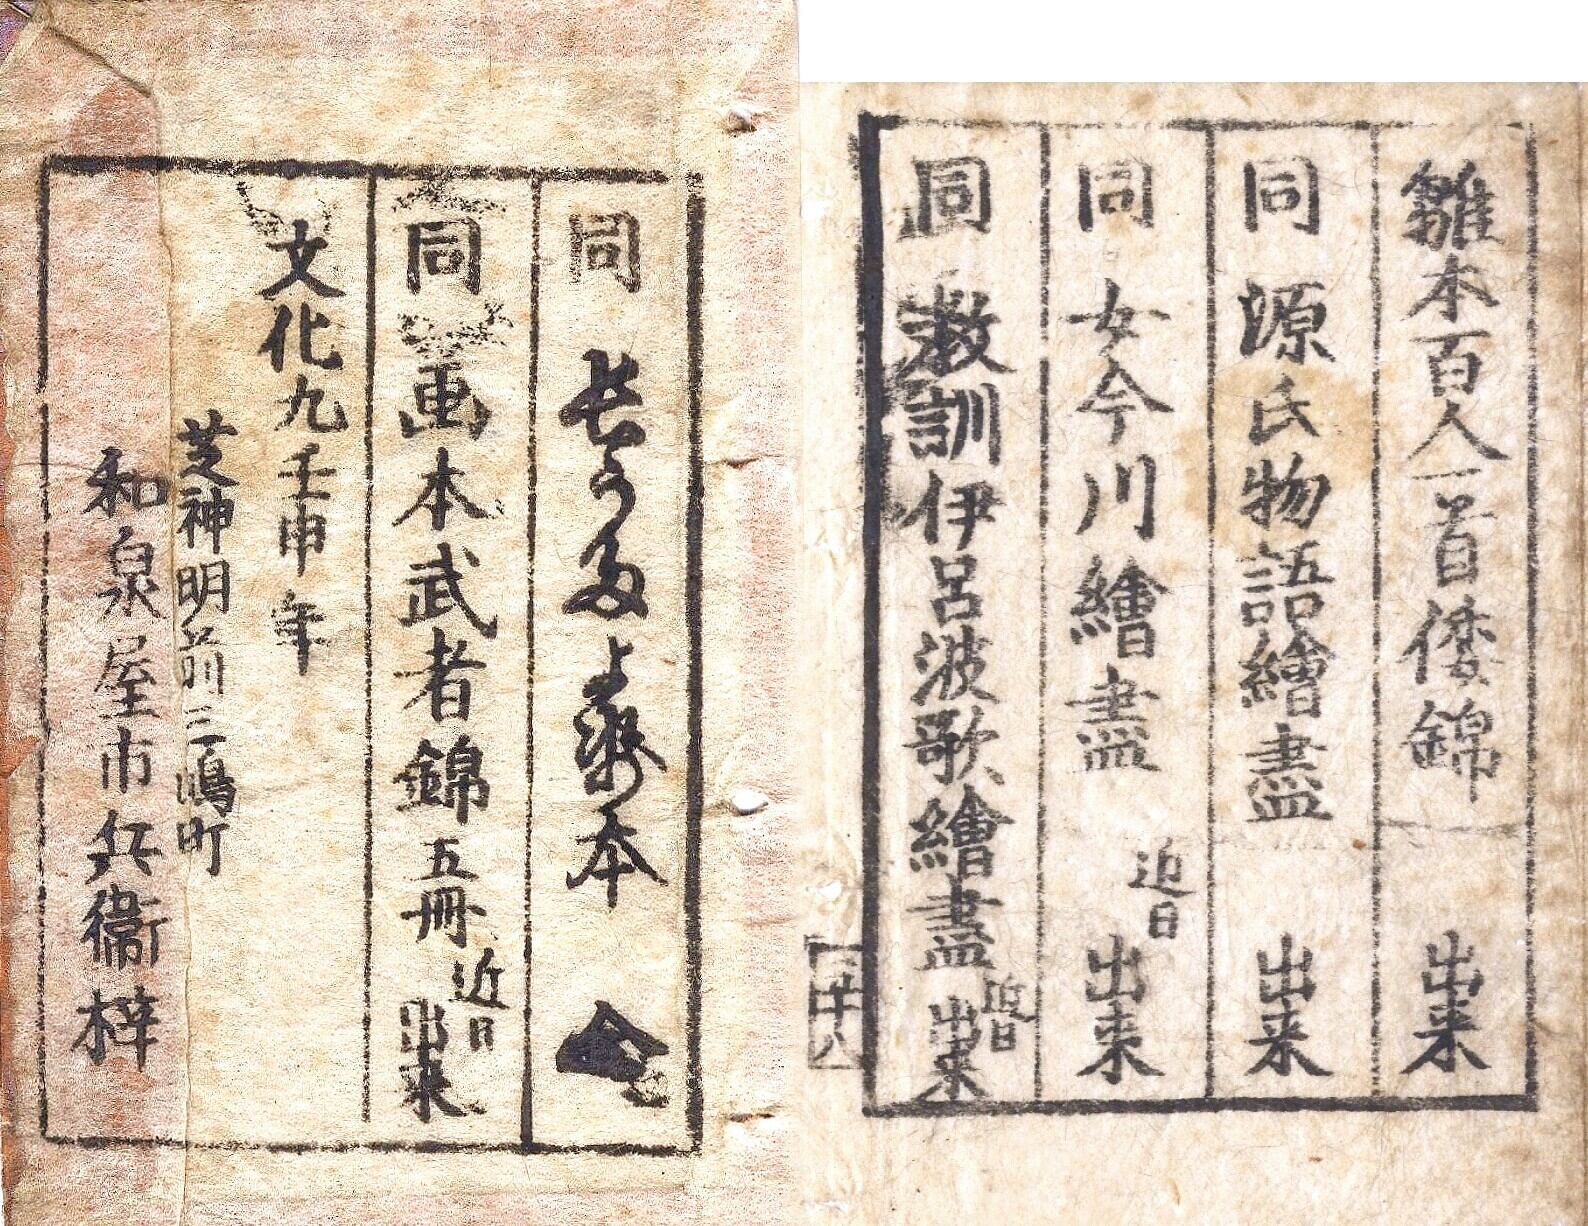 雛本百人一首倭錦 出来
同 源氏物語繪盡 出来
同 女今川繪盡 近日出来
同 教訓伊呂波歌繪盡 近日出来
廿八
同 本 全
同 画本武者錦 五冊 近日出来
文化九壬申年
芝神明前三嶋町
和泉屋市兵衞梓